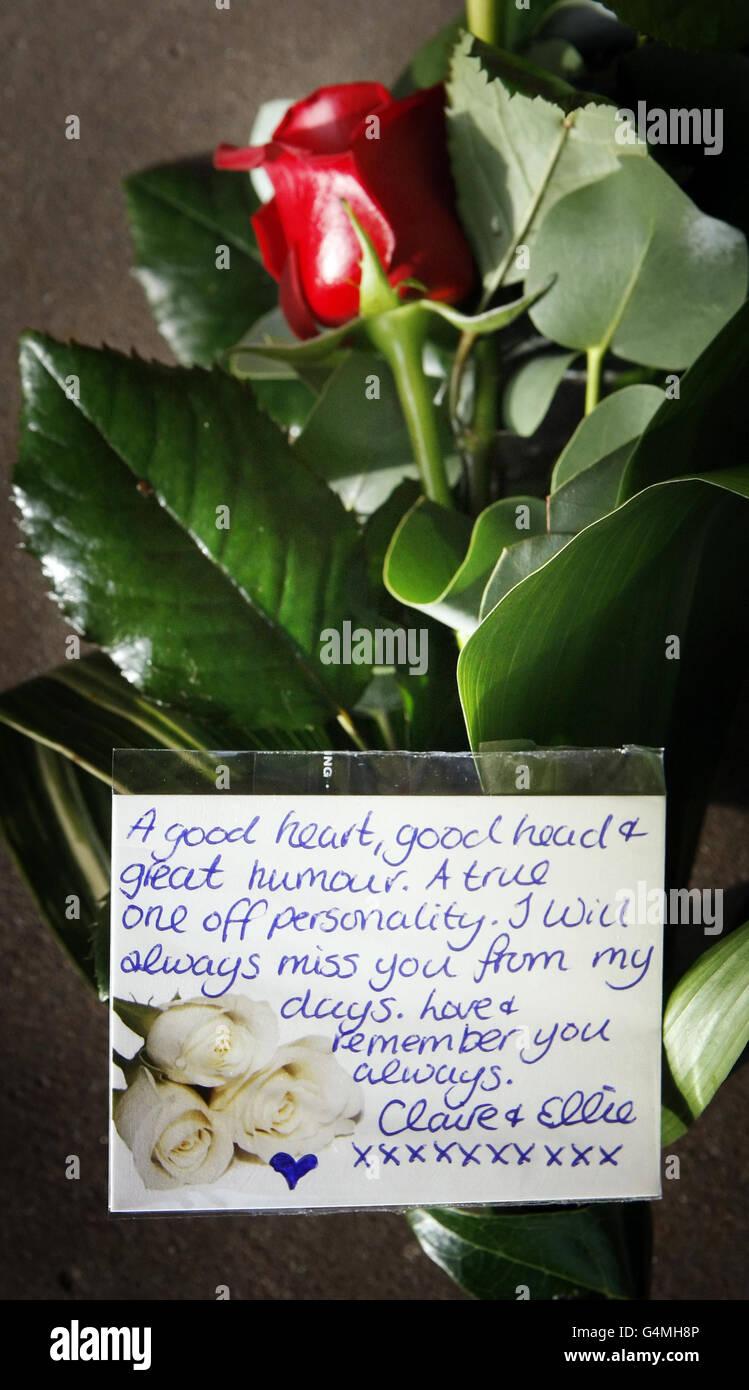 alamy
alamy
NG
A good heart, good head &
great humour. A true
one off personality. I will
always miss you from my
days. Love &
remember you
always.
Claire & Ellie
xxxxxxxxxx
alamy
Image ID: G4MH8P
www.alamy.com